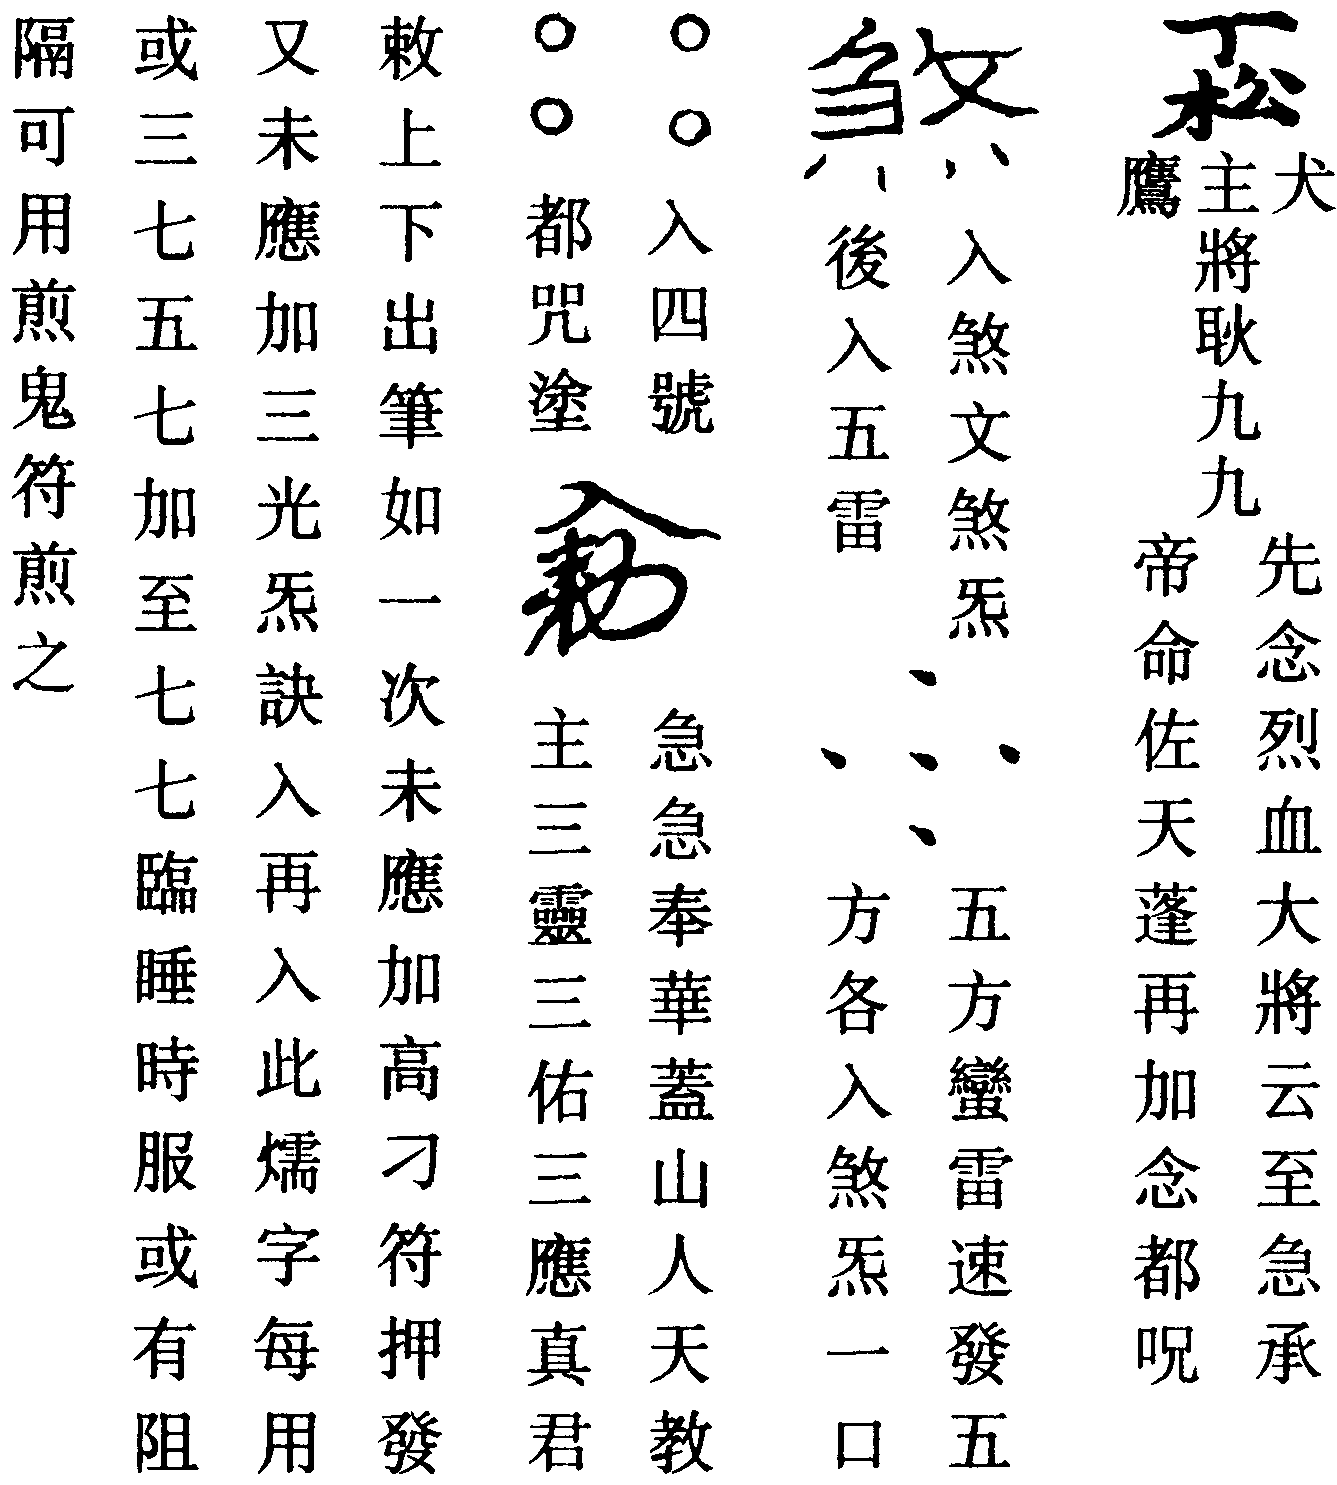 犬
主將耿九九
鷹
先念烈血大將云至急承
帝命佐天蓬再加念都呪
煞
入煞文煞炁
後入五雷
五方蠻雷速發五
方各入煞炁一口
入四號
都咒塗
急急奉華蓋山人天教
主三靈三佑三應真君
敕上下出筆如一次未應加高刁符押發
又未應加三光炁訣入再入此燸字每用
或三七五七加至七七臨睡時服或有阻
隔可用煎鬼符煎之